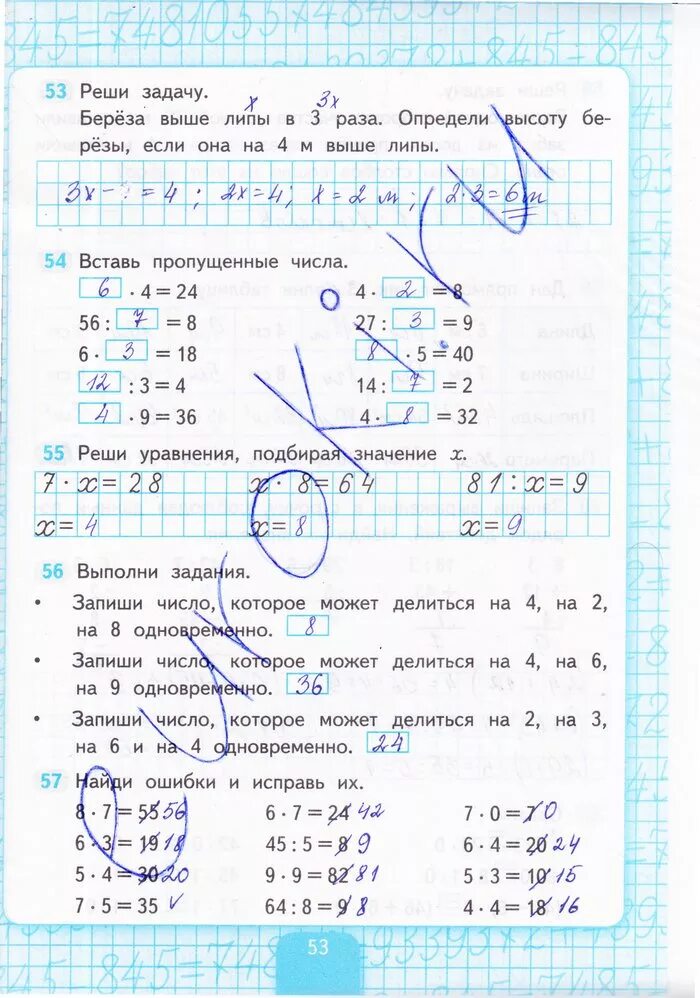 53 Реши задачу.
x 3x
Берёза выше липы в 3 раза. Определи высоту бе-
рёзы, если она на 4 м выше липы.
3x - = 4 ; 2x = 4; x = 2 м; 2·3 = 6 м
54 Вставь пропущенные числа.
6 · 4 = 24 4 · 2 = 8
56 : 7 = 8 27 : 3 = 9
6 · 3 = 18 8 · 5 = 40
12 : 3 = 4 14 : 7 = 2
4 · 9 = 36 4 · 8 = 32
55 Реши уравнения, подбирая значение x.
7 · x = 28 x · 8 = 64 81 : x = 9
x = 4 x = 8 x = 9
56 Выполни задания.
• Запиши число, которое может делиться на 4, на 2,
на 8 одновременно. 8
• Запиши число, которое может делиться на 4, на 6,
на 9 одновременно. 36
• Запиши число, которое может делиться на 2, на 3,
на 6 и на 4 одновременно. 24
57 Найди ошибки и исправь их.
8 · 7 = 55 56 6 · 7 = 24 42 7 · 0 = 7 0
6 · 3 = 19 18 45 : 5 = 8 9 6 · 4 = 20 24
5 · 4 = 30 20 9 · 9 = 82 81 5 · 3 = 10 15
7 · 5 = 35 ✓ 64 : 8 = 9 8 4 · 4 = 18 16
53